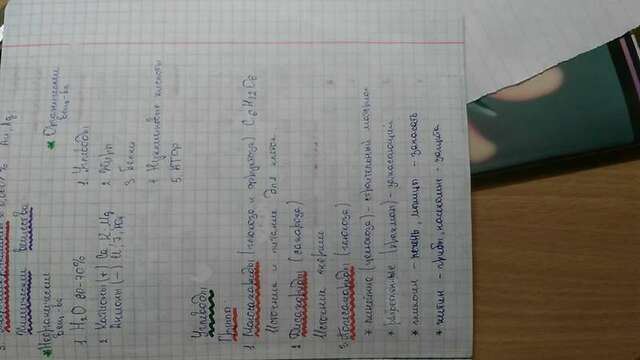 3. 0,0001% Au, Ag
Химические вещества
* Неорганические
вещ-ва
1. H2O 80-70%
2 Катионы (+) Ca, K, Mg
Анионы (-)
* Органические
вещ-ва
1. Углеводы
2 Жиры
3 Белки
4 Нуклеиновые кислоты
5. АТФ
Углеводы
Группы
1 Моносахариды (глюкоза и фруктоза) C6H12O6
Источник и питание для клеток
2 Дисахариды (сахароза)
Источник энергии
3. Полисахариды (глюкоза)
* линейные - строительный материал
* разветвленные (крахмал) - запасающий
* гликоген - печень, мышцы - запасать
* хитин - грибы, насекомые - защита